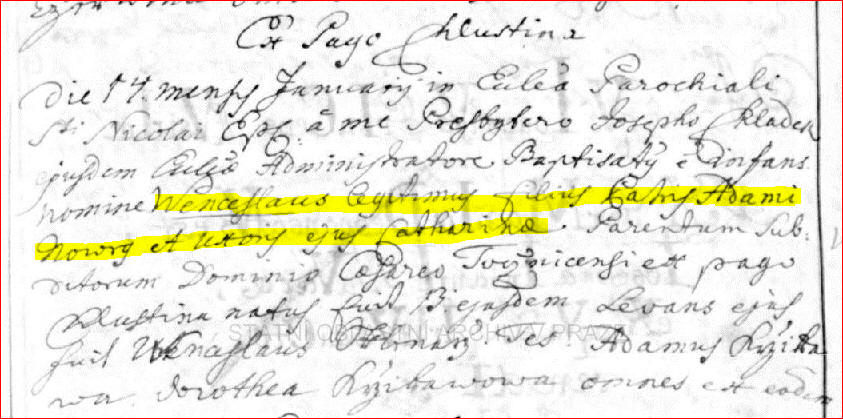 Ex Pago Chlustina
Die 14. mensis Januarij in Ecclea Parochiali
Sti Nicolai Epi. à me Presbytero Josepho Chladek
ejusdem Eccliae Administratore Baptisatus è infans
nomine Wenceslaus legitimus filius Patris Adami
Nowy et Uxoris ejus Catharinae. Parentum Sub:
ditorum Dominio Caesareo Tocznicensi ex pago
Chlustina natus fuit 13 ejusdem Levans ejus
fuit Wenceslaus Tes Adamus
wa. Dorothea omnes ex eodem
STÁTNÍ OBLASTNÍ ARCHIV V PRAZE